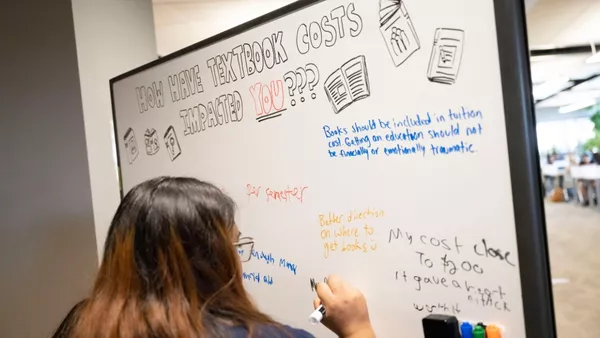 HOW HAVE TEXTBOOK COSTS
IMPACTED YOU???
Books should be included in tuition
cost. Getting an education should not
be financially or emotionally traumatic.
Per semester
Better direction
on where to
get books
My cost close
To $200
it gave a heart
attack
enough money